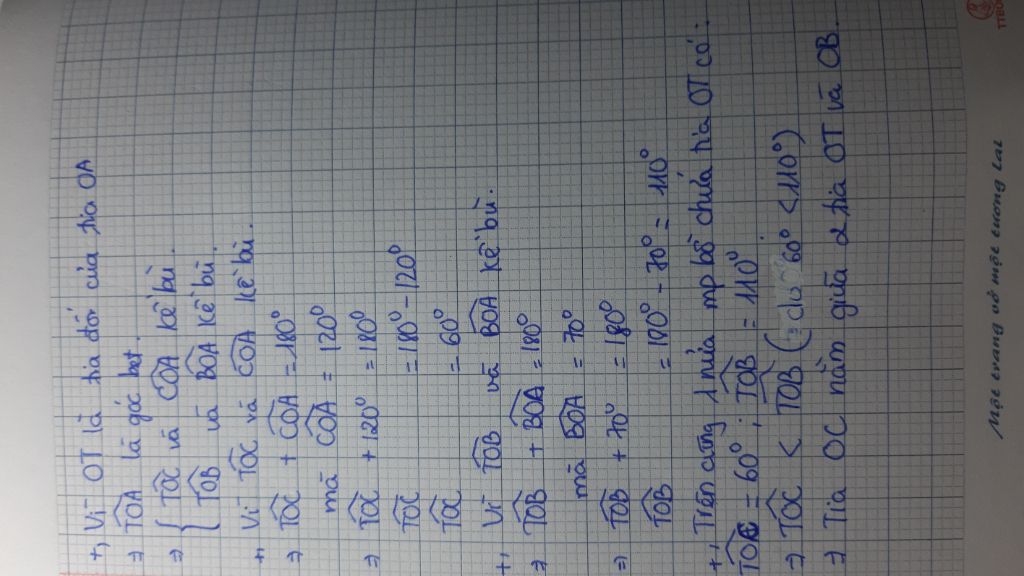 +, Vì OT là tia đối của tia OA
=> TOA là góc bẹt.
=> { TOC và COA kề bù.
TOB và BOA kề bù.
+, Vì TOC và COA kề bù.
=> TOC + COA = 180°
mà COA = 120°
=> TOC + 120° = 180°
TOC = 180° - 120°
TOC = 60°
+, Vì TOB và BOA kề bù.
=> TOB + BOA = 180°
mà BOA = 70°
=> TOB + 70° = 180°
TOB = 180° - 70° = 110°
+, Trên cùng 1 nửa mp bờ chứa tia OT có:
TOC = 60° ; TOB = 110°
=> TOC < TOB ( 60° < 110°)
=> Tia OC nằm giữa 2 tia OT và OB.
Một trang vở một tương lai